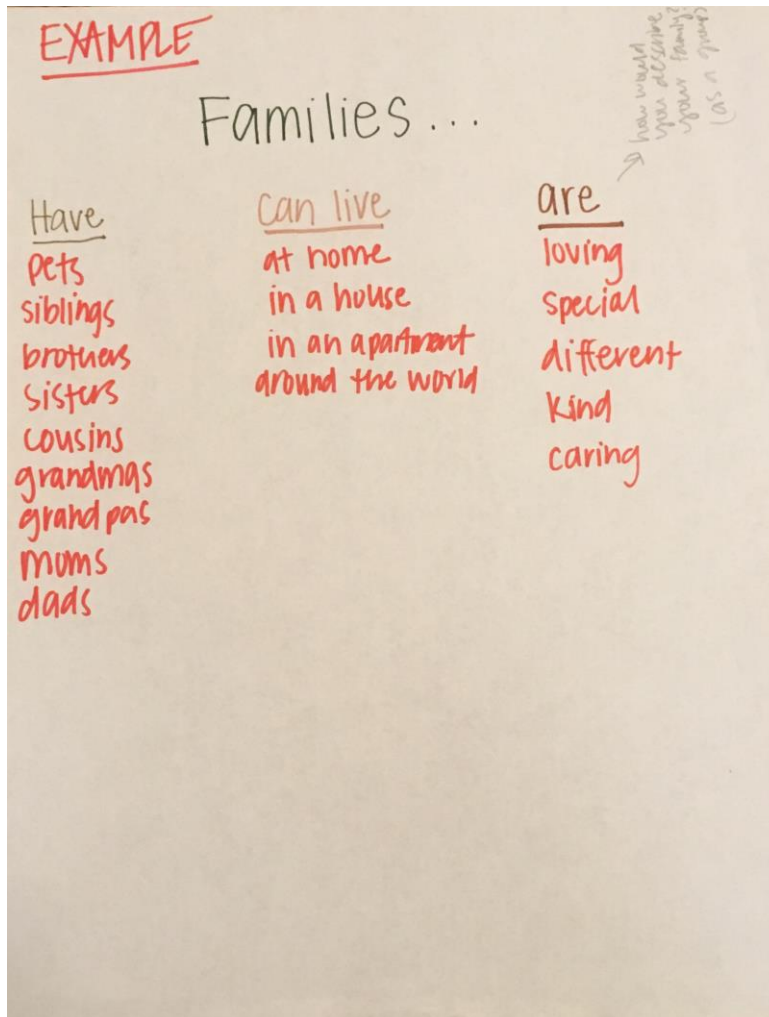 EXAMPLE
how would
you describe
your family?
(as a group)
Families...
Have
pets
siblings
brothers
sisters
cousins
grandmas
grandpas
moms
dads
can live
at home
in a house
in an apartment
around the world
are
loving
special
different
kind
caring